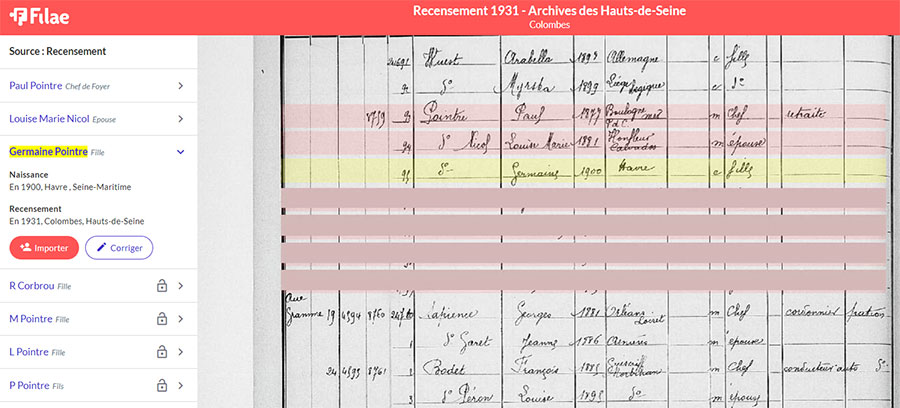 Filae
Recensement 1931 - Archives des Hauts-de-Seine
Colombes
Source : Recensement
Paul Pointre Chef de Foyer
Louise Marie Nicol Epouse
Germaine Pointre Fille
Naissance
En 1900, Havre , Seine-Maritime
Recensement
En 1931, Colombes, Hauts-de-Seine
Importer
Corriger
R Corbrou Fille
M Pointre Fille
L Pointre Fille
P Pointre Fils
Wuest Arabella Allemagne c fille
92 do Myrska 1899 Liège Belgique c do
8759 93 Pointre Paul 1877 Boulogne mer P.d.C. m Chef retraité
94 do Nicol Louise Marie 1881 Honfleur Calvados m épouse
95 do Germaine 1900 Havre c fille
rue
Gramme 19 4594 8760 Lapience Georges 1881 Orléans Loiret m Chef
1 do Garet Jeanne 1886 m épouse
4595 8761 2 Bodet François 1885 Morbihan m Chef conducteur auto do
3 do Péron Louise 1895 do m épouse